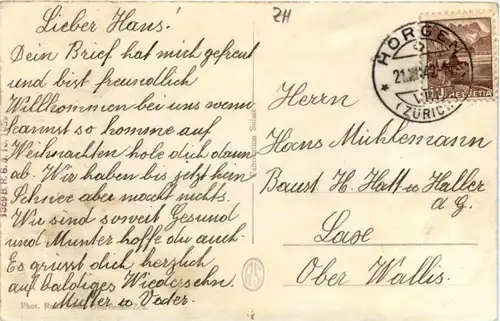 Lieber Hans!
Dein Brief hat mich gefreut
und bist freundlich
Willkommen bei uns wenn
kannst so komme auf
Weihnachten hole dich dann
ab. Wir haben bis jetzt kein
Schnee aber macht nichts.
Wir sind soweit Gesund
und Munter hoffe du auch.
Es grüsst dich herzlich
auf baldiges Wiedersehn.
Mutter u Vater.
Phot.
ZH
HORGEN
(ZÜRICH)
HELVETIA
Herrn
Hans Mühlemann
Baust H. Hatt u Haller
A G.
Laxe
Ober Wallis.